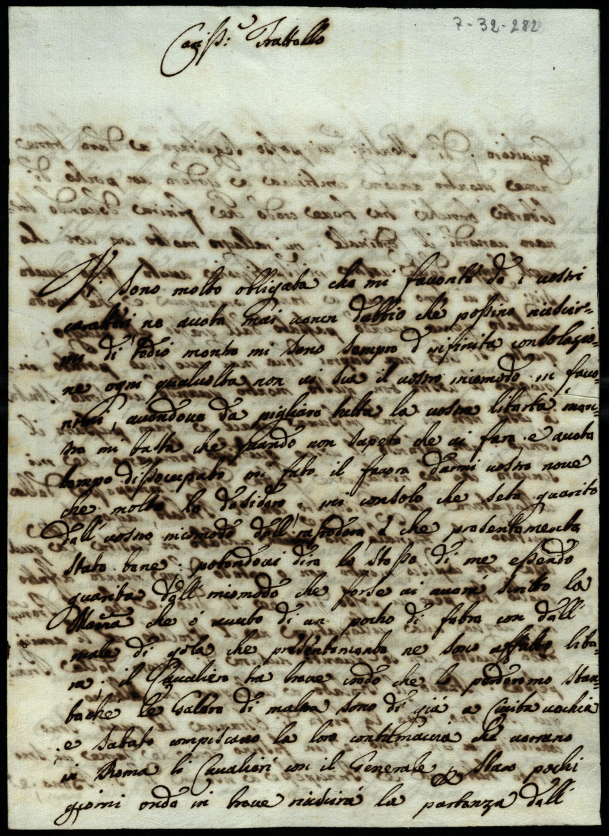 7-32-282
Cariss.º Frattello
Vi sono molto obligata che mi favorite de i vostri
caratteri ne avete mai aver dubio che possino riusir-
mi di tedio mentre mi sono sempre d'infinita consolazio-
ne ogni qualvolta non vi sia il vostro incomodo in favo-
rirmi, avendove da pigliare tutta la vostra libertà men-
tre mi basta che quando non sapete che vi fare e avete
tempo disoccupato mi fate il favore darmi vostre nove
che molto le desidero, mi consolo che sete guarito
dall vostro incomodo dell rafredore e che presentemente
state bene potendovi dire lo stesso di me essendo
guarita dall incomodo che forse vi averà scrito la
Maña che ò avuto di un pocho di febre con dell
male di gola che presentemente ne sono affatto libe-
ra: il Cavaliere ha breve credo che lo perderemo stan-
teche le Galere di malta sono di già a Civita vechia
e sabato compiscano la loro contumacia che verrano
in Roma li Cavalieri con il Generale p stare pochi
giorni onde in breve riuscirà la partenza dell